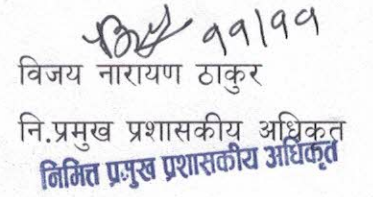 ११/११
विजय नारायण ठाकुर
नि.प्रमुख प्रशासकीय अधिकृत
निमित्त प्रमुख प्रशासकीय अधिकृत